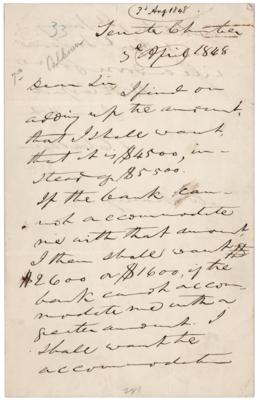 3d Aug 1848
33
Senate Chamber
3d April 1848
Calhoun
Dear Sir, I find on
adding up the amount,
that I shall want,
that it is $4500, in-
stead of $5500.
If the bank can-
not accommodate
me with that amount
I then shall want
$2600 or $1600, if the
bank cannot accom-
modate me with a
greater amount. I
shall want the
accommodation